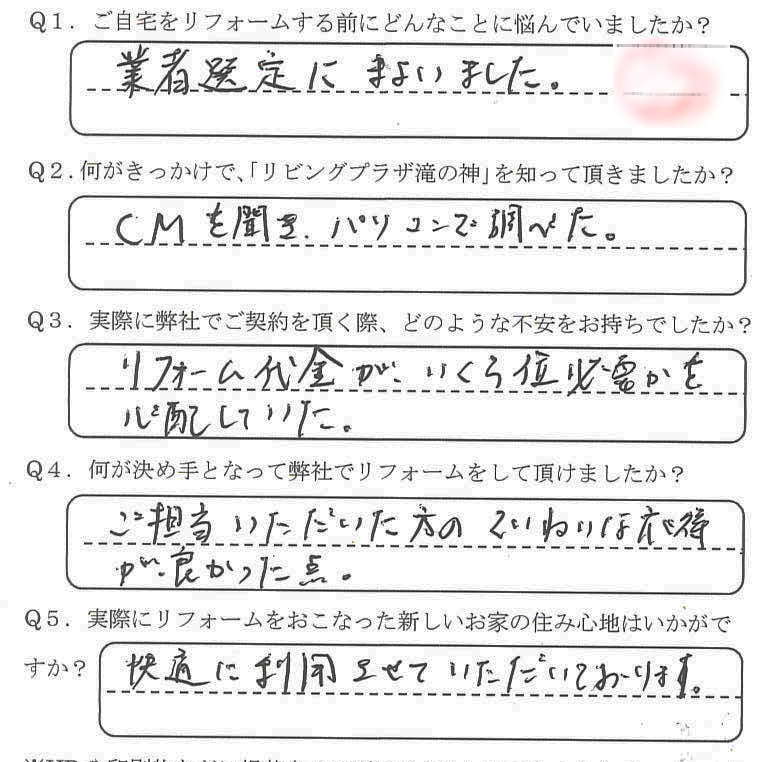 Q1．ご自宅をリフォームする前にどんなことに悩んでいましたか？
業者選定にまよいました。
Q2．何がきっかけで、「リビングプラザ滝の神」を知って頂きましたか？
CMを聞き、パソコンで調べた。
Q3．実際に弊社でご契約を頂く際、どのような不安をお持ちでしたか？
リフォーム代金が、いくら位必要かを
心配していた。
Q4．何が決め手となって弊社でリフォームをして頂けましたか？
ご担当いただいた方のていねいな応待
が良かった点。
Q5．実際にリフォームをおこなった新しいお家の住み心地はいかがで
すか？ 快適に利用させていただいております。